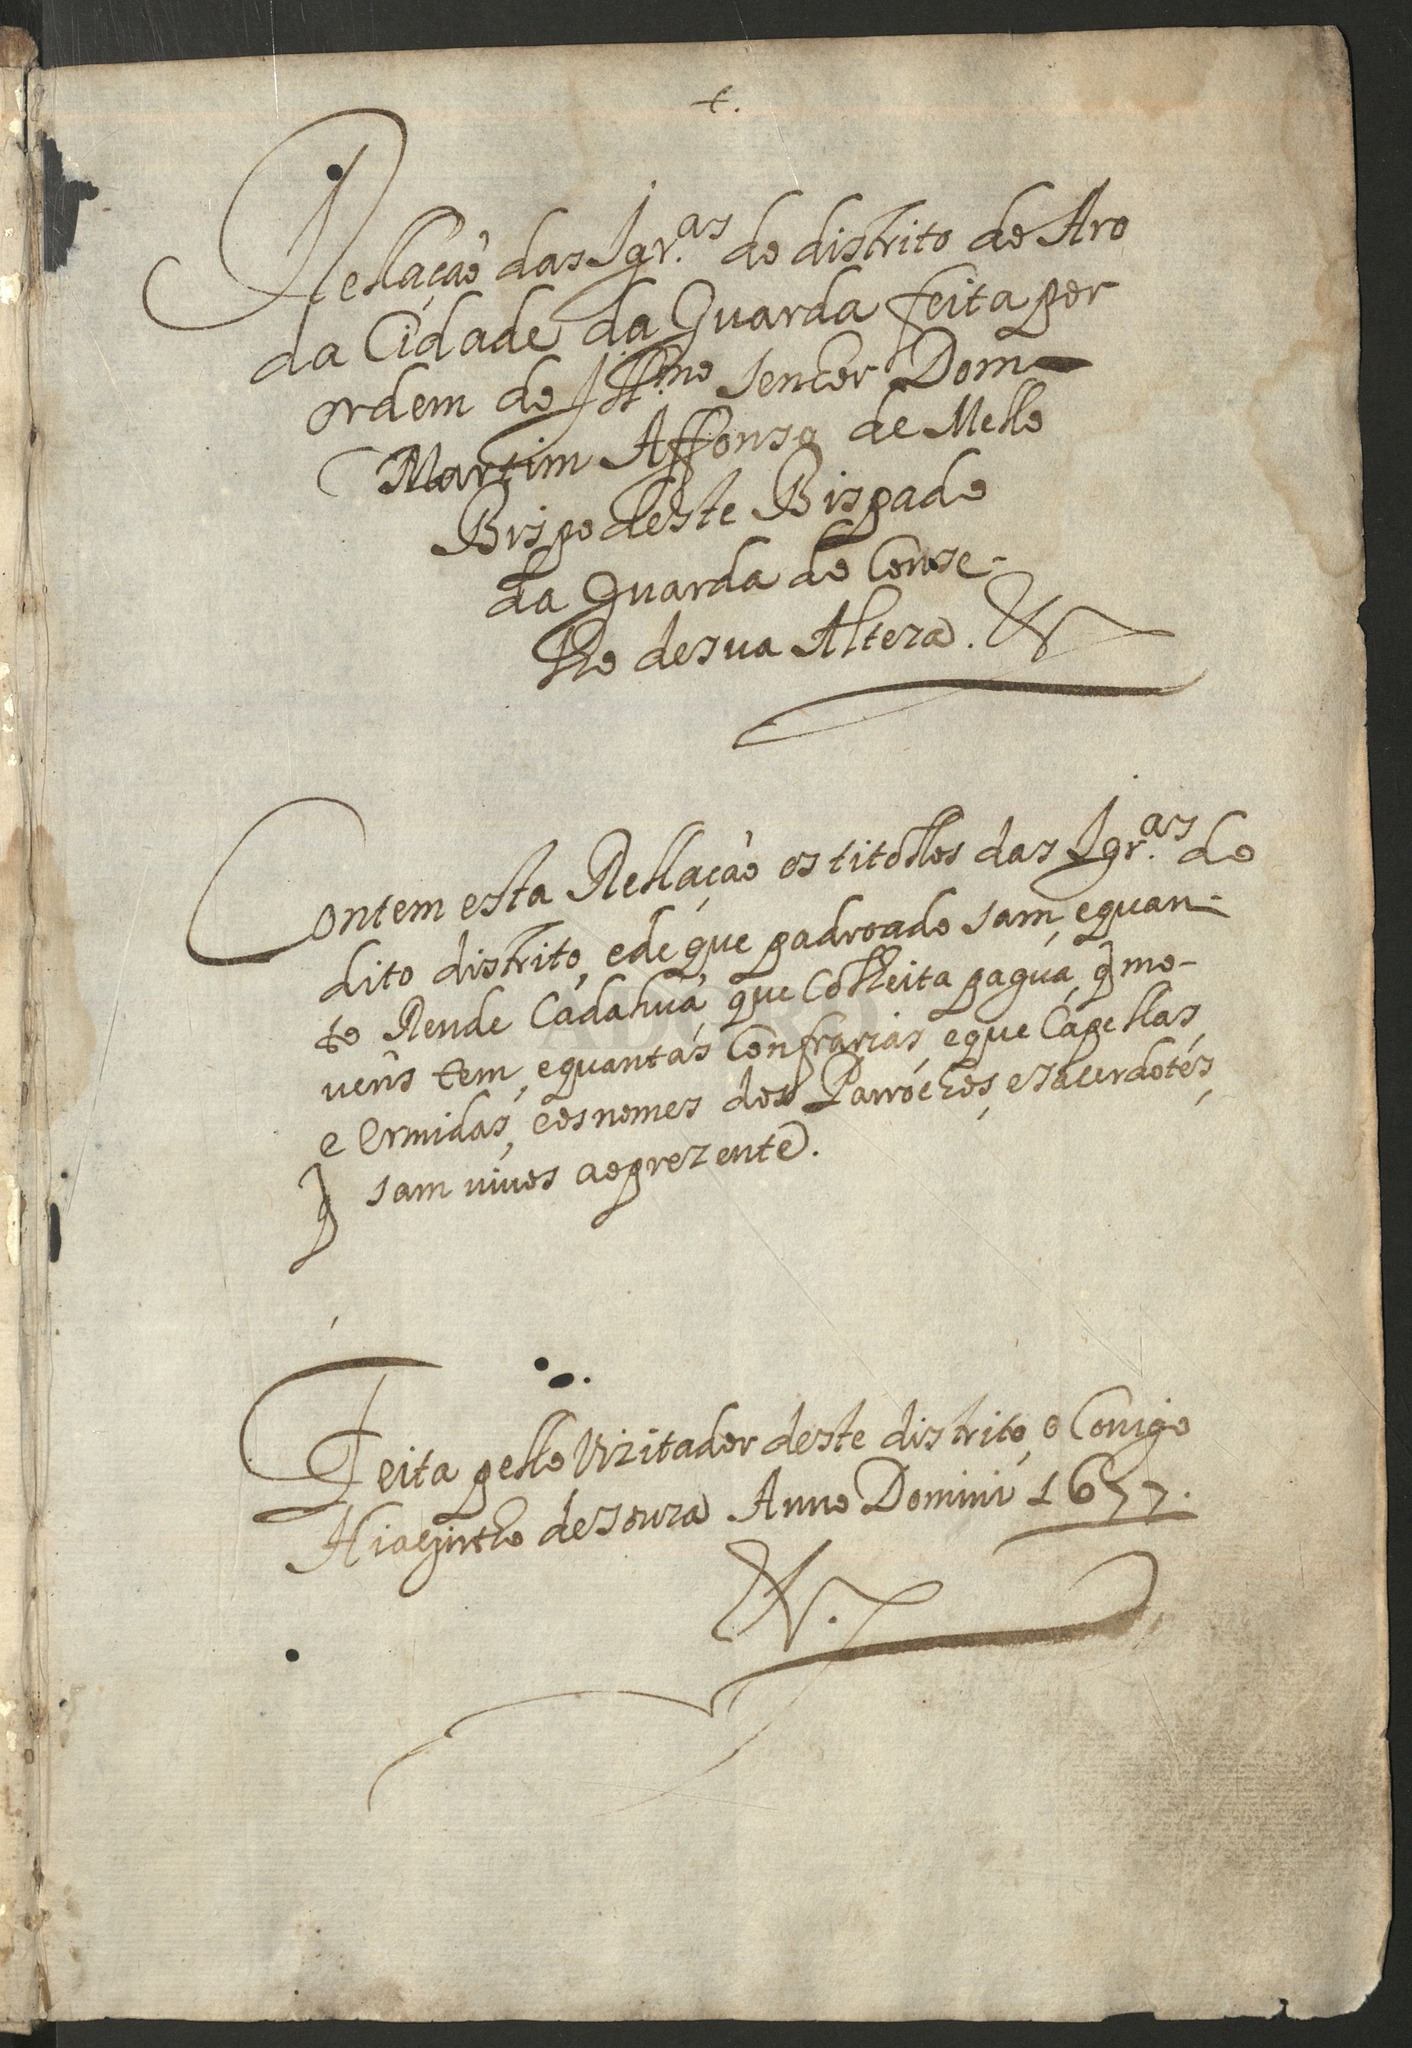 +.
Rellação das Igr.as do distrito do Aro
da Cidade da Guarda feita por
ordem do Ill.mo senhor Dom
Martim Affonso de Mello
Bispo deste Bispado
da Guarda do Conse-
lho de sua Alteza.
Contem esta Rellação os titollos das Igr.as do
dito distrito, e de que padroado sam, e quan-
to Rende Cada huá, que Colheita pagua, q mo-
ueñs tem, e quantas Confrarias, e que Capellas
e Ermidas, e os nomes dos Parrochos, e sacerdotes,
q sam uiuos ao prezente.
Feita pello Vizitador deste distrito, o Conigo
Hiacintho de souza Anno Domini 1677.